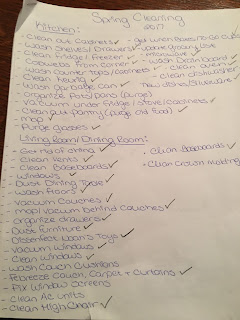 Spring Cleaning
2017
Kitchen:
- Clean out Cabinets ✓
- Wash Shelves/Drawers ✓
- Clean Fridge/Freezer ✓
- Cobwebs from corner ✓
- Wash Counter tops/cabinets ✓
- Clean Keurig ✓
- Wash Garbage Can ✓
- Organize Pots/Pans (purge)
- Vacuum under Fridge/Stove/Cabinets ✓
- Clean out pantry (purge old food) ✓
- Mop ✓
- Purge glasses ✓
- update grocery list
- Microwave ✓
- Wash Drainboard ✓
- Clean oven ✓
- Clean dishwasher
- New dishes/Silverware ✓
Living Room/Dining Room:
- Clean Vents ✓
- Clean Baseboards ✓
- Windows ✓
- Dust Dining Table ✓
- Wash floors ✓
- Vacuum Couches ✓
- Mop/vacuum behind couches ✓
- Organize drawers ✓
- Dust Furniture ✓
- Disinfect Toys ✓
- Vacuum Windows ✓
- Clean Windows ✓
- Wash Couch Cushions
- Febreeze Couch, Carpet + Curtains ✓
- Fix Window Screens
- Clean AC units
- Clean High Chair ✓
- Clean Baseboards ✓
- Clean Crown Molding